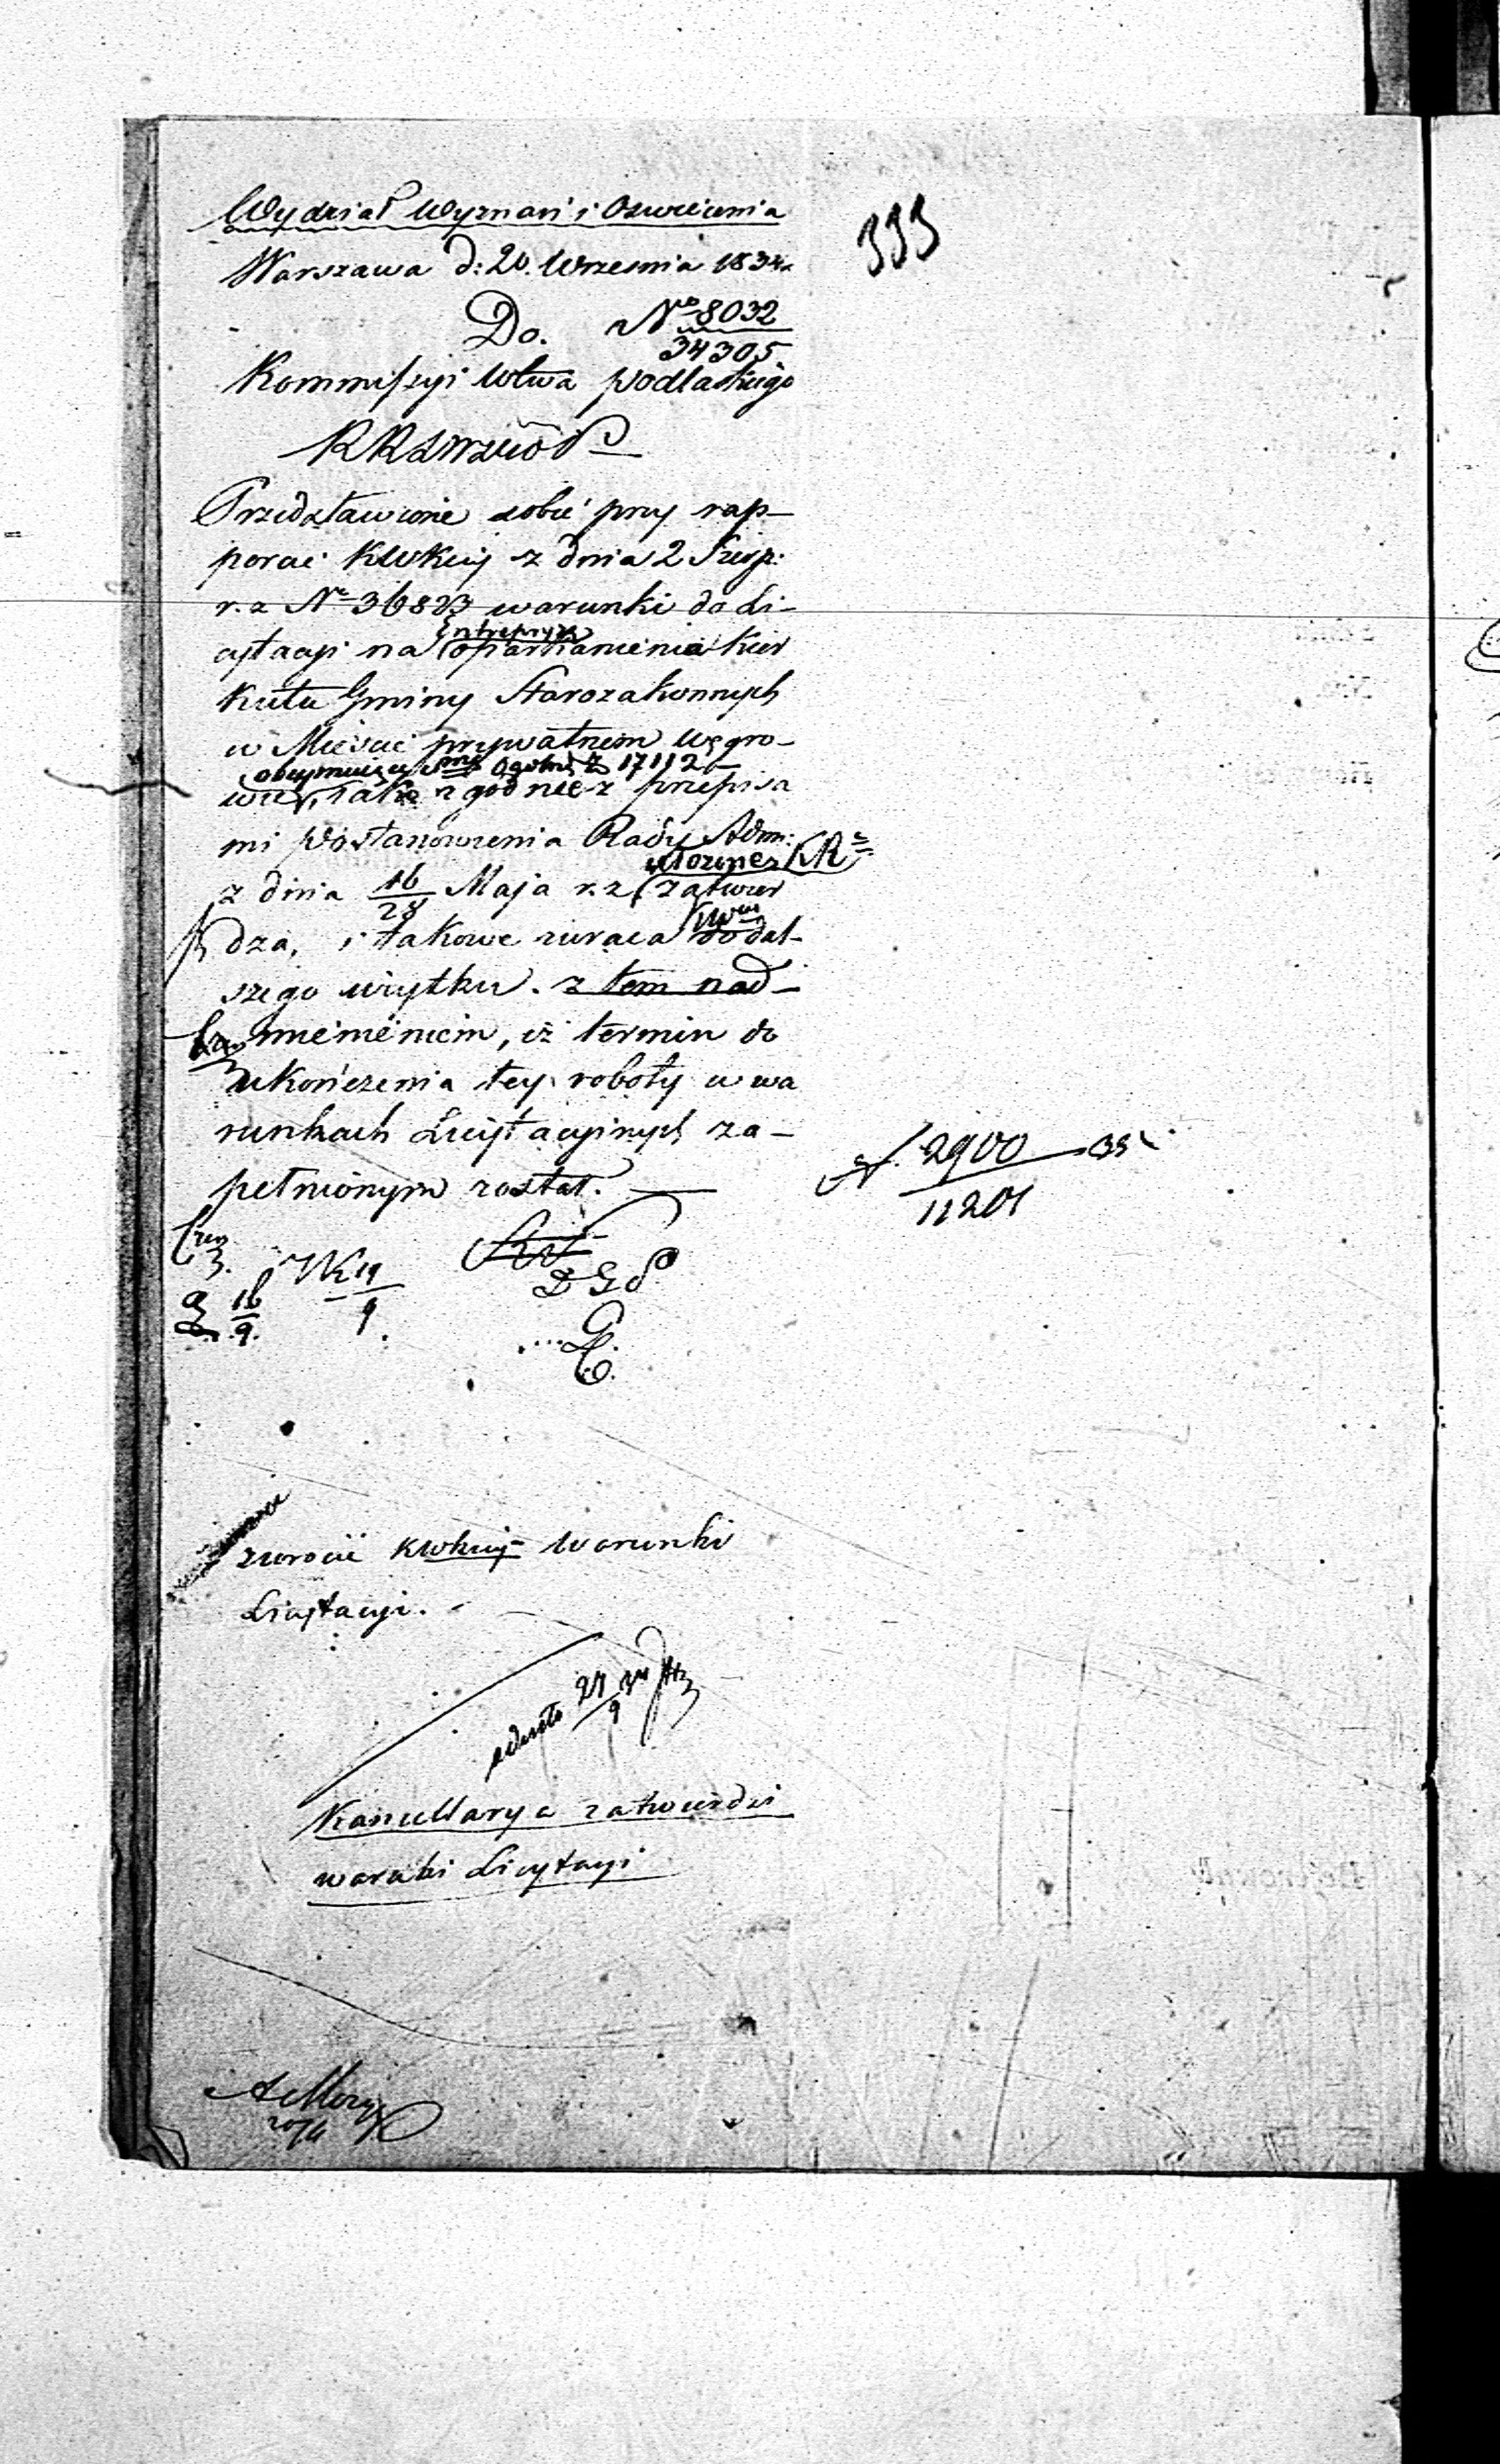 Wydział Wyznań i Oswiecenia
333
Warszawa d: 20. Wrzesnia 1834
Do. No 8032
34305
Kommissyi Wtwa Podlaskiego
KRSWDiOP
Przedstawione sobie przy rap-
porcie KWKiej z dnia 2 Sierp:
r. z No 36823 warunki do Li-
cytacyi na entrepryzę oparkanienia Kier
kutu Gminy Starozakonnych
w Mieście prywatnem Węgro-
obeymuiący Summę Ogólną Z 17112
wie, iako zgodnie z przepisa
mi Postanowienia Rady Admi:
ułożone, KR
z dnia 16/28 Maja r. z. zatwier
dza, i takowe zwraca KWeu do dal-
szego użytku. z tem nad-
mienieniem, iż termin do
ukończenia tey roboty w wa
runkach Licytacyinych za-
pełnionym został.
N. 2900
11201
VK 19/9
DGP
16/9.
zwrócić KWKiej Warunki
Licytacyi.
27/9 34
Kancellarya zatwierdzi
warunki Licytacyi